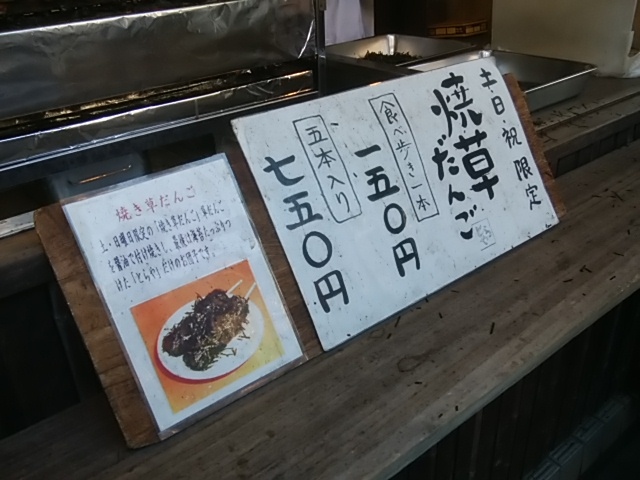 土日・祝 限定
焼草だんご
食べ歩き一本
一五〇円
五本入り
七五〇円
焼き草だんご
土・日曜日限定の「焼き草だんご」草だんご
を醤油で付け焼きし、最後に海苔たっぷりつ
けた「とらや」だけのお団子です。